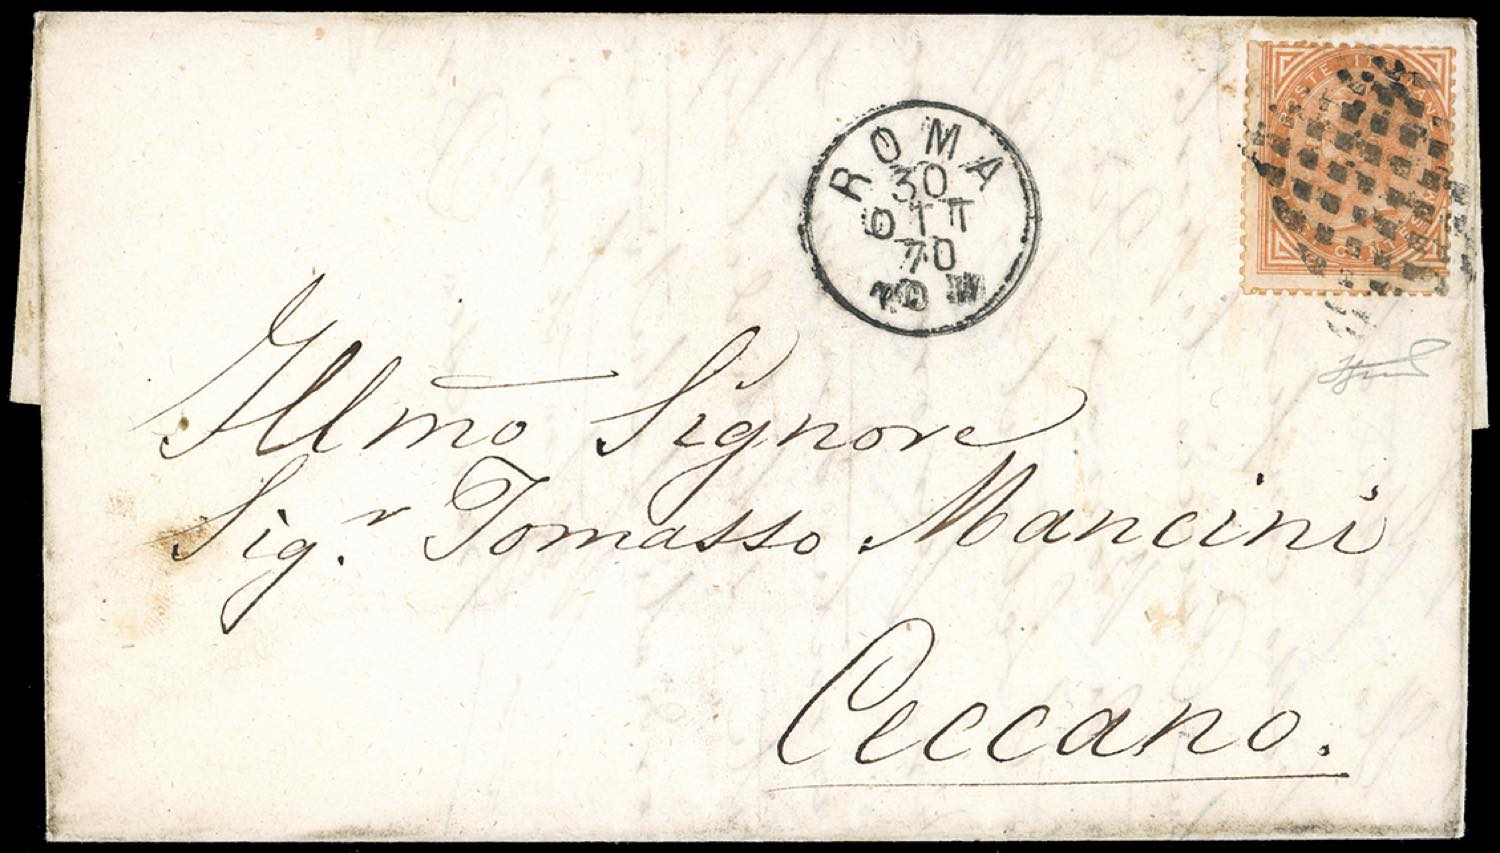 ROMA
30
OTT
70
10 M
POSTE ITALIANE
CENT
Illmo Signore
Sig.r Tomasso Mancini
Ceccano.